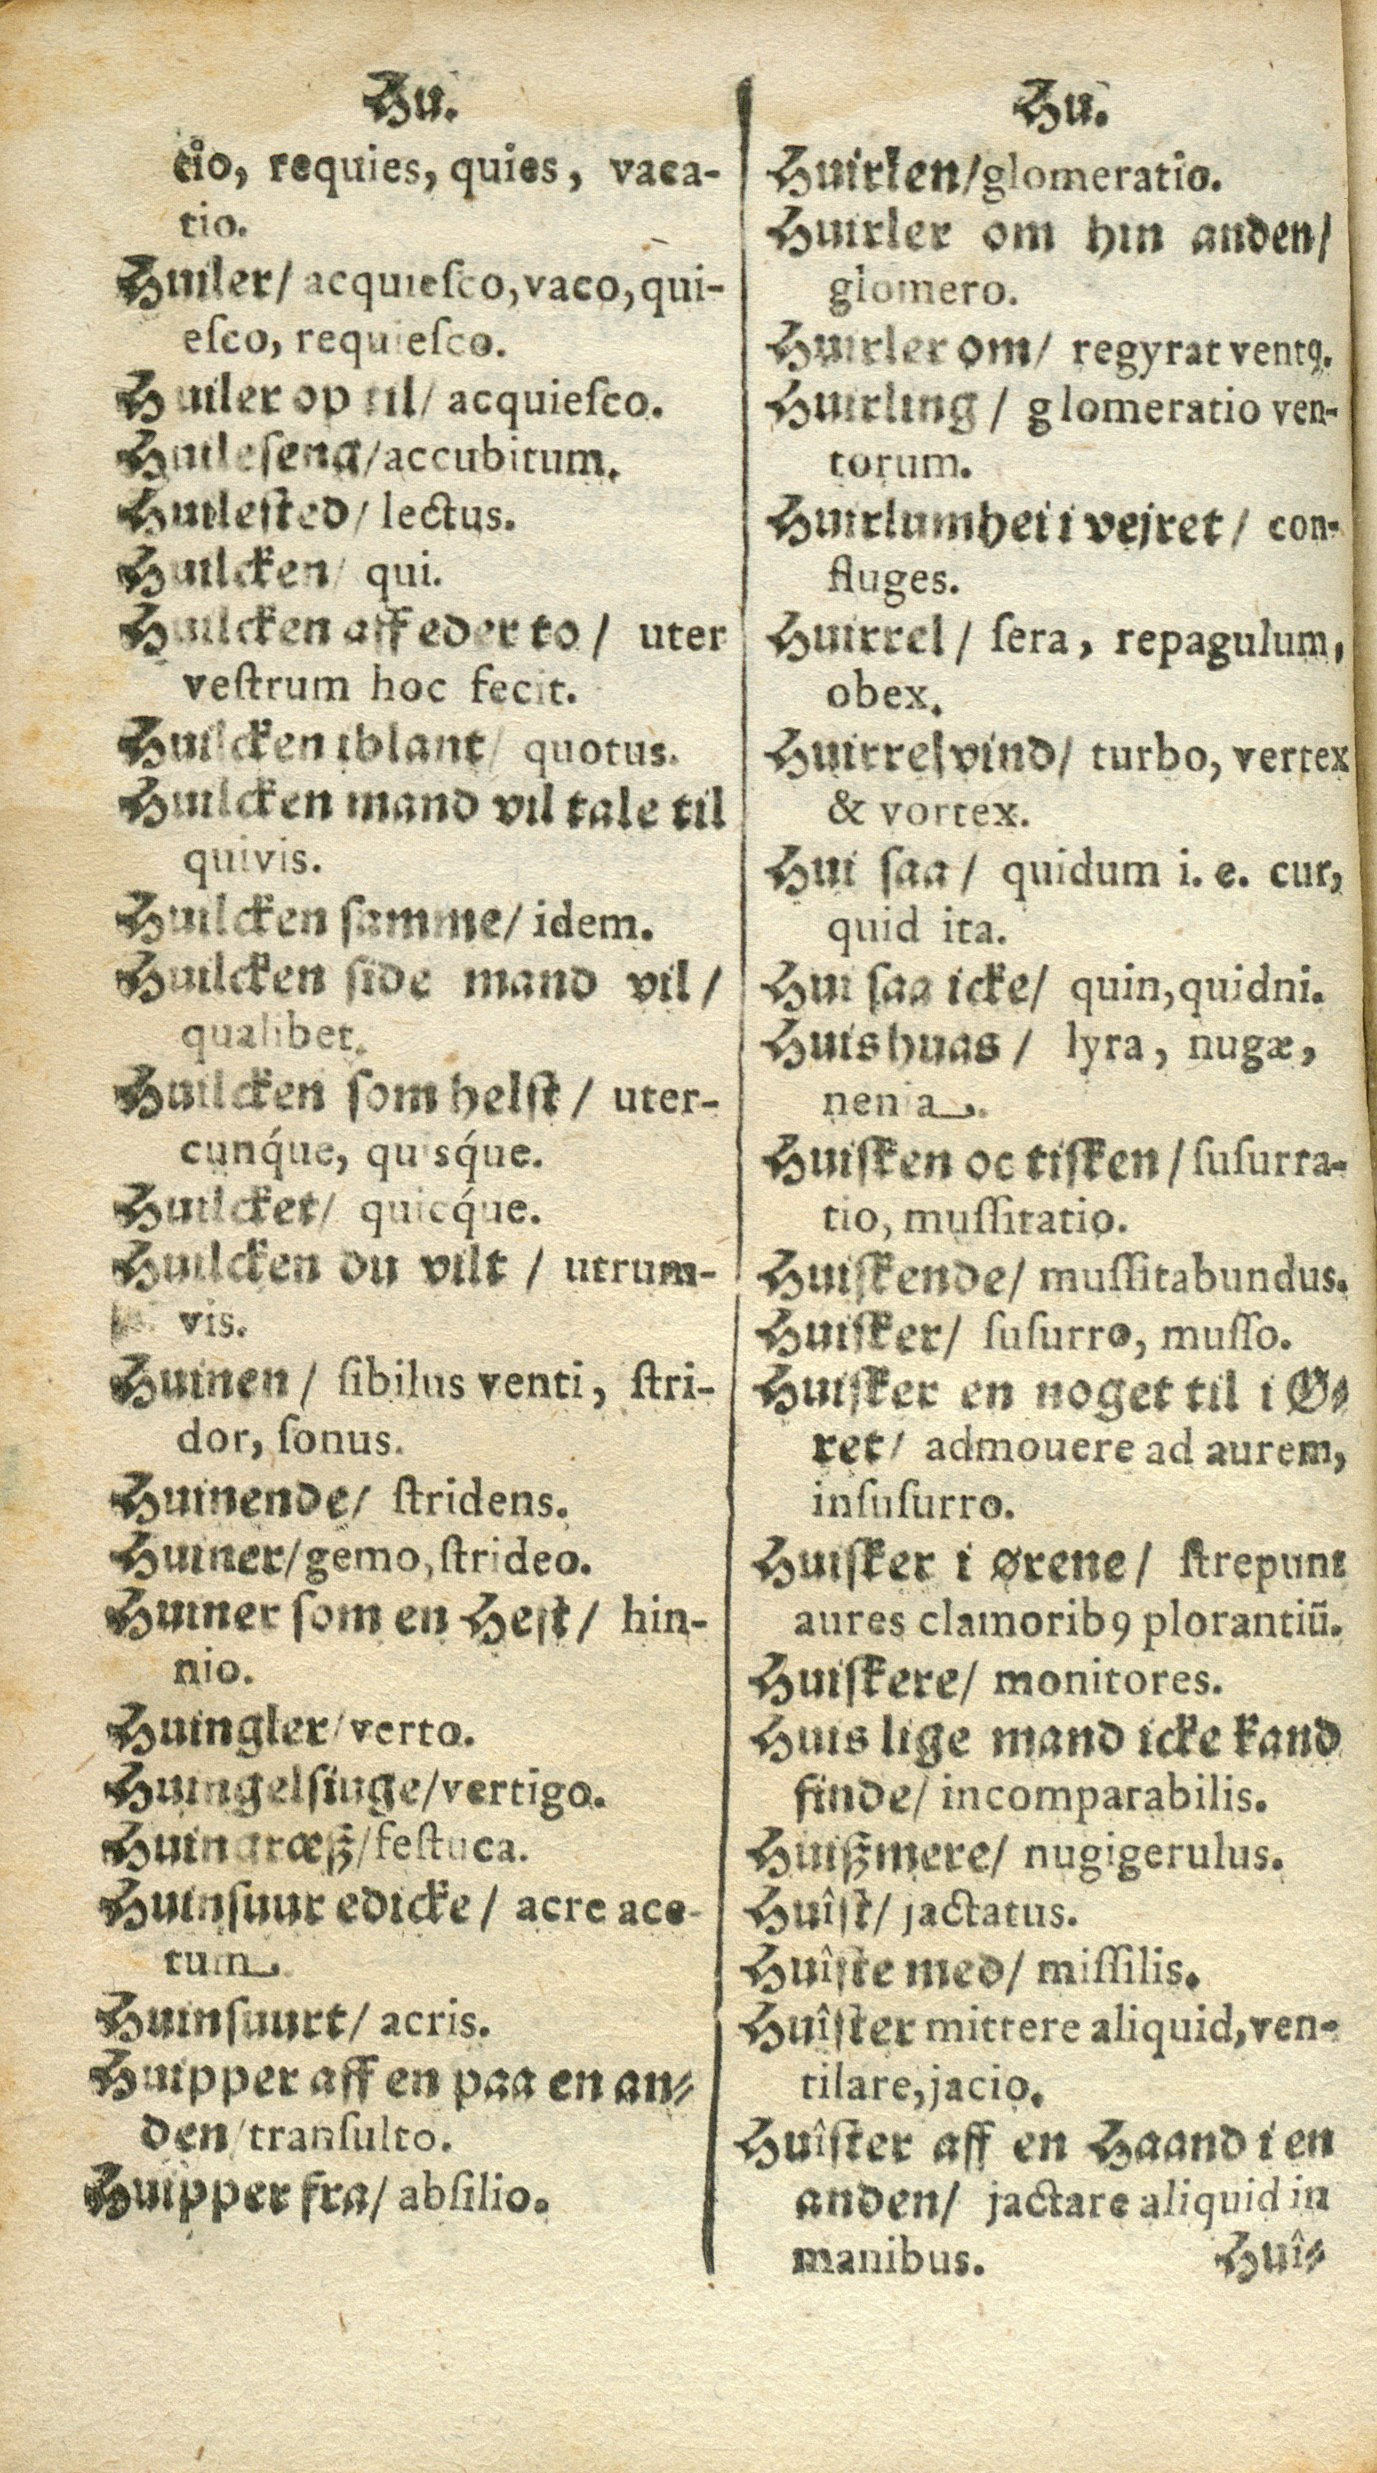 Hu.
tio, requies, quies, vaca-
tio.
Huiler/ acquieſco, vaco, qui-
eſco, requieſco.
Huiler op til/ acquieſco.
Huileſeng/accubitum.
Huileſted/ lectus.
Huilcken/ qui.
Huilcken aff eder to/ uter
veſtrum hoc fecit.
Huilcken iblant/ quotus.
Huilcken mand vil tale til
quivis.
Huilcken ſamme/ idem.
Huilcken ſide mand vil/
qualibet.
Huilcken ſom helſt/ uter-
cunq́ue, quisq́ue.
Huilcket/ quicq́ue.
Huilcken du vilt/ utrum-
vis.
Huinen/ ſibilus venti, ſtri-
dor, ſonus.
Huinende/ ſtridens.
Huiner/gemo, ſtrideo.
Huiner ſom en Heſt/ hin-
nio.
Huingler/verto.
Huingelſiuge/vertigo.
Huingræß/feſtuca.
Huinſuur edicke/ acre ace-
tum.
Huinſuurt/ acris.
Huipper aff en paa en an⸗
den/tranſulto.
Huipper fra/ abſilio.
Hu.
Huirlen/glomeratio.
Huirler om hin anden/
glomero.
Huirler om/ regyrat ventꝰ.
Huirling/ glomeratio ven-
torum.
Huirlumhei i vejret/ con-
fluges.
Huirrel/ ſera, repagulum,
obex.
Huirrelvind/ turbo, vertex
& vortex.
Hui ſaa/ quidum i. e. cur,
quid ita.
Hui ſaa icke/ quin, quidni.
Huishuas/ lyra, nugæ,
nenia.
Huiſken oc tiſken/ſuſurra-
tio, muſſitatio.
Huiſkende/ muſſitabundus.
Huiſker/ ſuſurro, muſſo.
Huiſker en noget til i Ø⸗
ret/ admouere ad aurem,
inſuſurro.
Huiſker i ørene/ ſtrepunt
aures clamoribꝰ plorantiũ.
Huiſkere/ monitores.
Huis lige mand icke kand
finde/ incomparabilis.
Huißmere/ nugigerulus.
Huîſt/ jactatus.
Huîſte med/ miſſilis.
Huîſter mittere aliquid, ven-
tilare, jacio.
Huîſter aff en Haand i en
anden/ jactare aliquid in
manibus.
Huî⸗